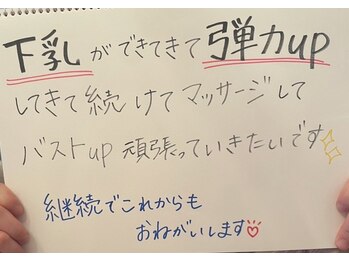 下乳ができてきて弾力up
してきて続けてマッサージして
バストup頑張っていきたいです
継続でこれからも
おねがいします